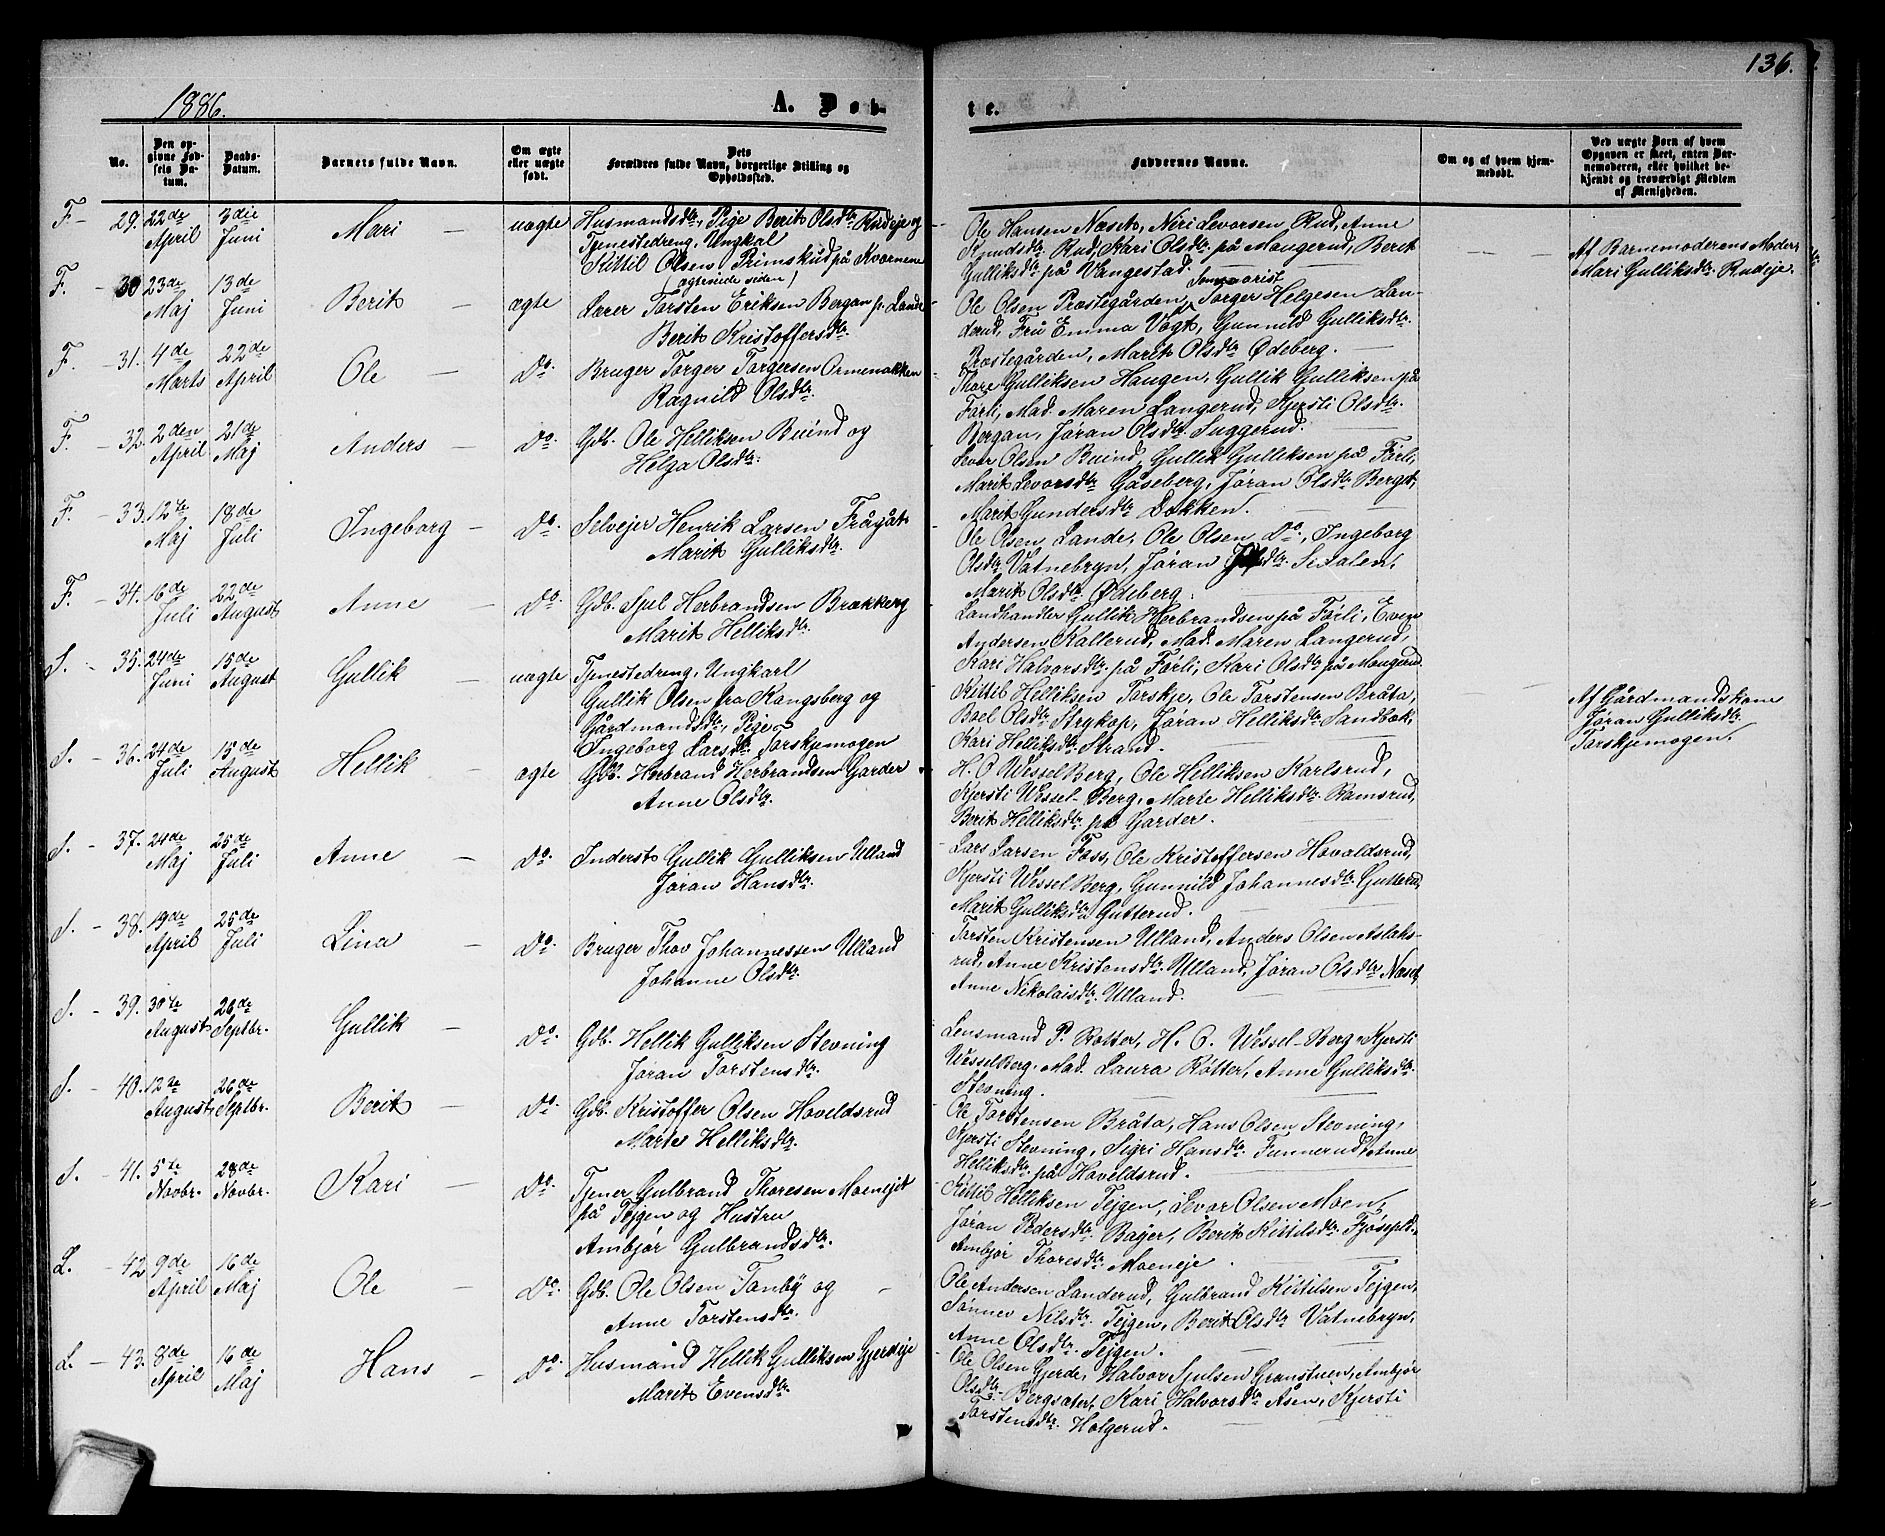 136.
1886.
A. Døb-
te.
No.
Den op-
givne Fød-
sels Da-
tum.
Daabs-
Datum.
Barnets fulde Navn.
Om ægte
eller uægte
født.
Dets
Forældres fulde Navn, borgerlige Stilling og
Opholdssted.
Faddernes Navne.
Om og af hvem hjem-
medøbt.
Ved uægte Børn af hvem
Opgaven er skeet, enten Bar-
nemoderen, eller hvilket be-
kjendt og troværdigt Medlem
af Menigheden.
F. - 29. 22de April 3die Juni Mari - uægte
Husmandsdtr., Pige Berit Olsdtr. Rudeje og
Tjenestedreng, Ungkal
Kittil Olsen Primskud på Kvornene
(agterude siden)
Ole Hansen Næset, Niri Levorsen Rud, Anne
Knudsdtr. Rud, Kari Olsdtr. på Maugerud, Berit
Gulliksdtr. på Vangestad.
Af Barnemoderens Moder
Mari Gulliksdtr. Rudeje.
F. - 30 23de Maj 13de Juni Berit - ægte
Lærer Torsten Eriksen Bergan p. Lande
Berit Kristoffersdtr.
Ole Olsen Præstegården, Torger Helgesen Lan-
derud, Fru Emma Vogt, Gunnild Gulliksdtr.
Præstegården, Marit Olsdtr. Ødeberg.
F. - 31. 4de Marts 22de April Ole - Do.
Bruger Torger Torgersen Ormenakken
Ragnild Olsdtr.
Thore Gulliksen Haugen, Gullik Gulliksen på
Førli, Mad. Maren Langerud, Kjersti Olsdtr.
Bergan, Jøran Olsdtr. Suggerud.
F. - 32. 2den April 21de Maj Anders - Do.
Gdb. Ole Helliksen Buind og
Helga Olsdtr.
Levor Olsen Buind, Gullik Gulliksen på Førli,
Marit Levorsdtr. Gåseberg, Jøran Olsdtr. Berget,
Marit Gundersdtr. Løkken.
F. - 33. 12te Maj 18de Juli Ingeborg - Do.
Selvejer Henrik Larsen Frågåt
Marit Gulliksdtr.
Ole Olsen Lande, Ole Olsen Do., Ingeborg
Olsdtr. Vatnebryn, Jøran
Marit Olsdtr. Ødeberg.
F. - 34. 16de Juli 22de August Anne - Do.
Gdb. Sjul Herbrandsen Brækkerg
Marit Helliksdtr.
Landhandler Gullik Herbrandsen på Førli, Even
Andersen Kallerud, Mad. Maren Langerud,
Kari Halvorsdtr. på Førli, Kari Olsdtr. på Maugerud.
S. - 35. 24de Juni 15de August Gullik - uægte
Tjenestedreng, Ungkarl
Gullik Olsen fra Kongsberg og
Gårdmandsdtr., Pige
Ingeborg Larsdtr. Torskjemogen
Kittil Helliksen Torskje, Ole Torstensen Bråta,
Boel Olsdtr. Strykop, Jøran Helliksdtr. Sandbæk,
Kari Helliksdtr. Strand.
Af Gårdmandskone
Jøran Gulliksdtr.
Torskjemogen.
S. - 36. 24de Juli 15de August Hellik - ægte
Gdb. Herbrand Herbrandsen Garder
Anne Olsdtr.
H. C Wessel Berg, Ole Helliksen Karlsrud,
Kjersti Wessel-Berg, Marte Helliksdtr. Ramsrud,
Berit Helliksdtr. på Garder.
S. - 37. 24de Maj 25de Juli Anne - Do.
Inderst Gullik Gulliksen Ulland
Jøran Hansdtr.
Lars Larsen Foss, Ole Kristoffersen Hovaldsrud,
Kjersti Wessel Berg, Gunnild Johannesdtr. Gutterud,
Marit Gulliksdtr. Gutterud.
S. - 38. 19de April 25de Juli Lina - Do.
Bruger Thov Johannessen Ulland
Johanne Olsdtr.
Torsten Kristensen Ulland, Anders Olsen Aslaks-
rud, Anne Kristensdtr. Ulland, Jøran Olsdtr. Næset,
Anne Nikolaisdtr. Ulland.
S. - 39. 30te August 26de Septbr. Gullik - Do.
Gdb. Hellik Gulliksen Stevning
Jøran Torstensdtr.
Lensmand P. Rotter, H. C. Wessel-Berg, Kjersti
Wessel Berg, Mad. Laura Rotter, Anne Gulliksdtr.
Stevning.
S. - 40. 12te August 26de Septbr. Berit - Do.
Gdb. Kristoffer Olsen Hoveldsrud
Marte Helliksdtr.
Ole Torstensen Bråta, Hans Olsen Stevning,
Kjersti Stevning, Sigri Hansdtr. Funnerud, Anne
Helliksdtr. på Hoveldsrud.
S. - 41. 5te Novbr. 28de Novbr. Kari - Do.
Tjener Gulbrand Thoresen Moenejet
på Tejgen og Hustru
Ambjør Gulbrandsdtr.
Kittil Helliksen Tejgen, Levor Olsen Moen,
Jøran Pedersdtr. Bager, Berit Kittilsdtr. Fjøsepl.,
Ambjør Thoresdtr. Moeneje.
L. - 42 9de April 16de Maj Ole - Do.
Gdb. Ole Olsen Tonby og -
Anne Torstensdtr.
Ole Andersen Landerud, Gulbrand Kittilsen Tejgen,
Sønnev Nilsdtr. Tejgen, Berit Olsdtr. Vatnebryn,
Anne Olsdtr. Tejgen.
L. - 43. 8de April 16de Maj Hans - Do.
Husmand Hellik Gulliksen Gjerdeje
Marit Evensdtr.
Ole Olsen Gjerde, Halvor Sjulsen Granstuen, Ambjør
Olsdtr. Bergsætet, Kari Halvorsdtr. Åsen, Kjersti
Torstensdtr. Holgerud.